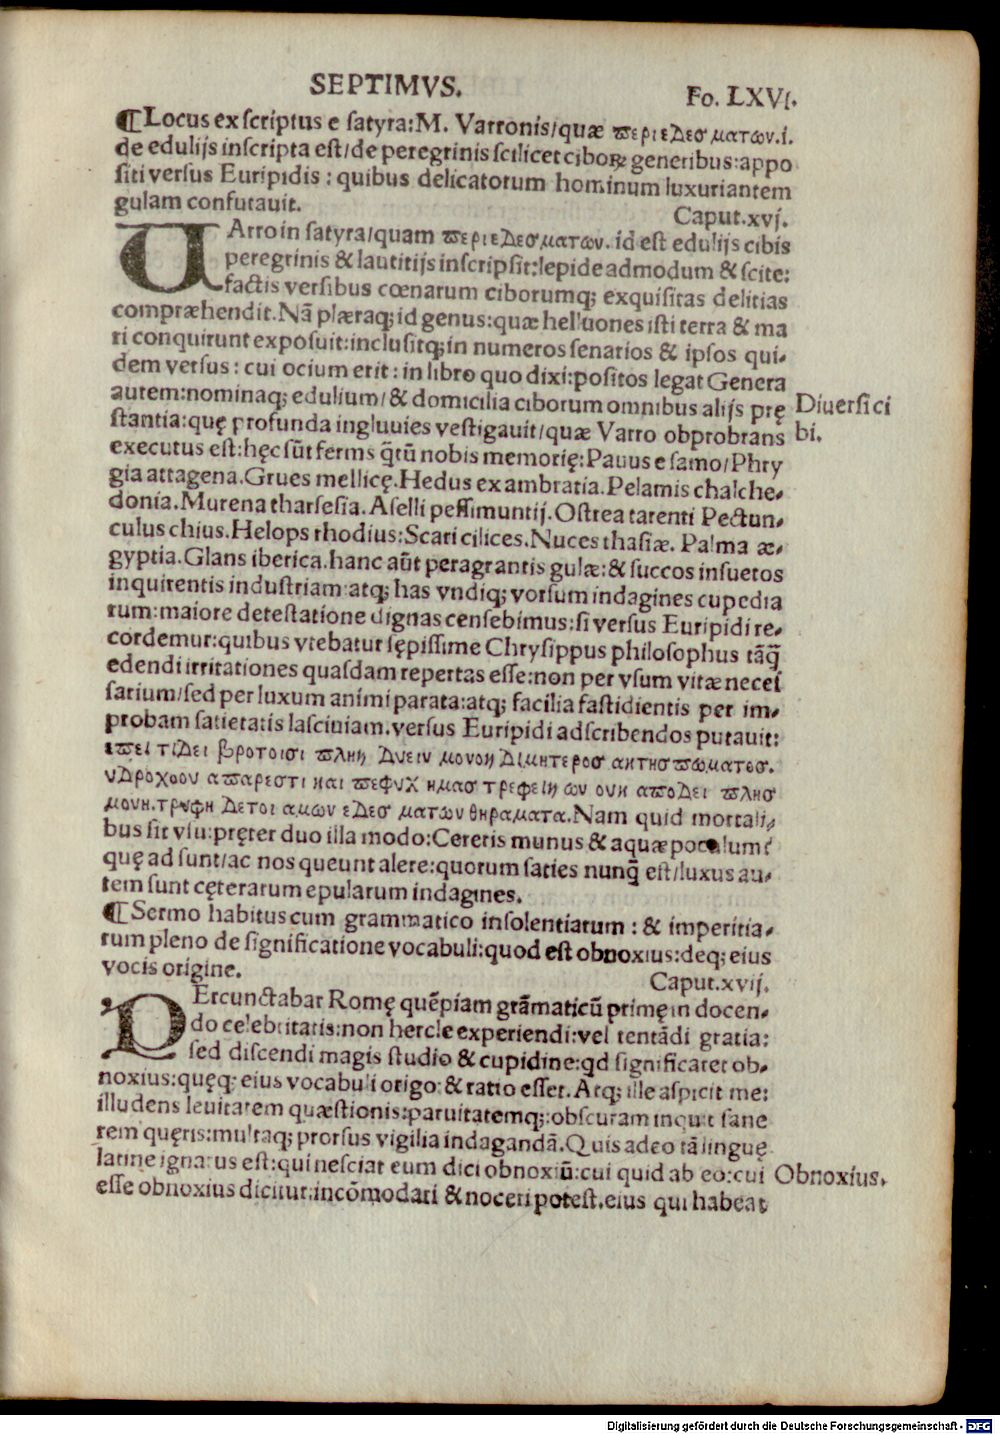 SEPTIMVS.
Fo. LXVI.
¶Locus exſcriptus e ſatyra:M. Varronis/quæ ϖεριεΔεσματων.i.
de edulijs inſcripta eſt/de peregrinis ſcilicet ciboꝝ generibus:appo
ſiti verſus Euripidis : quibus delicatorum hominum luxuriantem
gulam confutauit.
Caput.xvj.
UArro in ſatyra/quam ϖεριεΔεσματων. id eſt edulijs cibis
peregrinis & lautitijs inſcripſit:lepide admodum & ſcite:
factis verſibus cœnarum ciborumq; exquiſitas delitias
compræhendit. Nā plæraq; id genus:quæ helluones iſti terra & ma
ri conquirunt expoſuit:incluſitq; in numeros ſenarios & ipſos qui⸗
dem verſus : cui ocium erit : in libro quo dixi:poſitos legat Genera
autem:nominaq; edulium/& domicilia ciborum omnibus alijs prę
Diuerſi ci
ſtantia:quę profunda ingluuies veſtigauit/quæ Varro obprobrans
bi.
executus eſt:hęc sūt ferms q̄tū nobis memorię:Pauus e ſamo/Phry
gia attagena.Grues mellicę.Hedus ex ambratia.Pelamis chalche⸗
donia.Murena tharſeſia. Aſelli peſſimuntij.Oſtrea tarenti Pectun⸗
culus chius.Helops rhodius:Scari cilices.Nuces thaſiæ. Palma æ⸗
gyptia.Glans iberica.hanc aūt peragrantis gulæ:& ſuccos inſuetos
inquirentis induſtriam:atq; has vndiq; vorſum indagines cupedia
rum:maiore deteſtatione dignas cenſebimus:ſi verſus Euripidi re⸗
cordemur:quibus vtebatur ſępiſſime Chryſippus philoſophus tāq̄
edendi irritationes quaſdam repertas eſſe:non per vſum vitæ neceſ
ſarium/ſed per luxum animi parata:atq; facilia faſtidientis per im⸗
probam ſatietatis laſciuiam.verſus Euripidi adſcribendos putauit:
εϖει τιΔει βροτοισι ϖλην Δυειν μονον Διμητεροσ ακτησ ϖωματοσ.
υΔροχοου αϖαρεστι και ϖεφυχ ημασ τρεφειν ων ουκ αϖοΔει ϖλησ
μονη.τρυφη Δετοι αμων εΔεσ ματων θηραματα.Nam quid mortali⸗
bus ſit vſu:pręter duo illa modo:Cereris munus & aquæ poculum:
quę ad ſunt/ac nos queunt alere:quorum ſaties nunq̄ eſt/luxus au⸗
tem ſunt cęterarum epularum indagines.
¶Sermo habitus cum grammatico inſolentiarum : & imperitia⸗
rum pleno de ſignificatione vocabuli:quod eſt obnoxius:deq; eius
vocis origine.
Caput.xvij.
PErcunctabar Romę quēpiam grāmaticū primę in docen⸗
do celebritatis:non hercle experiendi:vel tentādi gratia:
ſed diſcendi magis ſtudio & cupidine:qd ſignificaret ob⸗
noxius:quęq; eius vocabuli origo & ratio eſſet. Atq; ille aſpicit me:
illudens leuitatem quæſtionis:paruitatemq;:obſcuram inquit ſane
rem quęris:multaq; prorſus vigilia indagandā.Quis adeo tā linguę
latinę ignarus eſt:qui neſciat eum dici obnoxiū:cui quid ab eo:cui
Obnoxius.
eſſe obnoxius dicitur:incōmodari & noceri poteſt.eius qui habeat
Digitalisierung gefördert durch die Deutsche Forschungsgemeinschaft - DFG